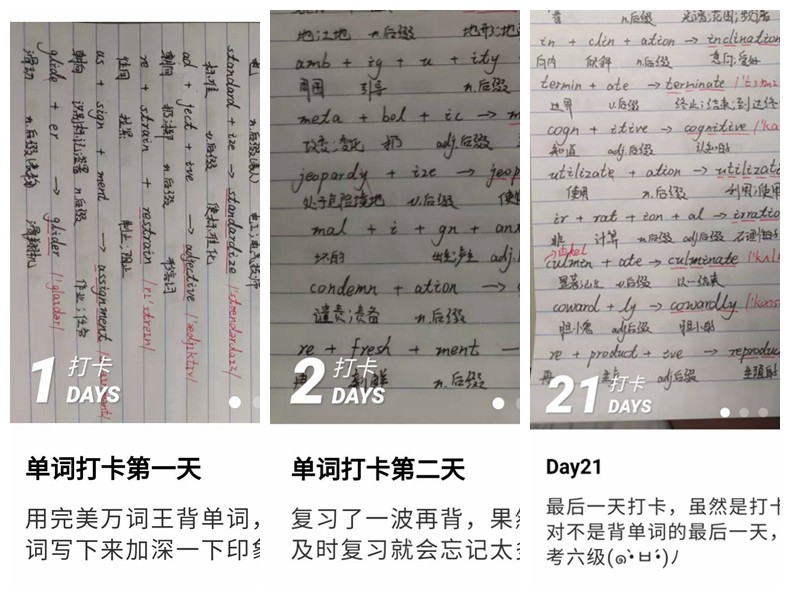 n.后缀(表人)
standard + ize → standardize /'stændərdaɪz/
标准 v.后缀 使标准化
ad + ject + ive → adjective /'ædʒɪktɪv/
朝向 n.后缀 形容词
re + strain + restrain /rɪ'streɪn/
往回 拉紧 制止;阻止
us + sign + ment → assignment
朝向 n.后缀 作业;任务
glide + er → glider /'ɡlaɪdər/
滑动 n.后缀 滑翔机
1 打卡
DAYS
单词打卡第一天
用完美万词王背单词，
词写下来加深一下印象
地;土地 n.后缀 地形;地
amb + ig + u + ity
周围 引导 n.后缀
meta + bol + ic →
改变;变化 扔 adj.后缀
jeopardy + ize → jeop
处于危险境地 v.后缀 使
mal + i + gn + an
坏的 出生;产生 adj.
condemn + ation →
谴责;责备 n.后缀
re + fresh + ment →
再 新鲜 n.后缀
2 打卡
DAYS
单词打卡第二天
复习了一波再背，果然
及时复习就会忘记太多
n.后缀
in + clin + ation → inclination
向内 倾斜 n.后缀 意向;爱好
termin + ate → terminate
边界 v.后缀 终止;结束;到达终
cogn + itive → cognitive
知道 adj.后缀 认知的
utilizate + ation → utilizati
使用 n.后缀 利用;使用
ir + rat + ion + al → irratio
非 计算 n.后缀 adj后缀
culmin + ate → culminate
v.后缀 以…结束
coward + ly → cowardly
胆小者 adj后缀 胆小的
re + product + ive → reproduc
再 adj后缀
21 打卡
DAYS
Day21
最后一天打卡，虽然是打卡
对不是背单词的最后一天，
考六级(๑•̀ㅂ•́)ﾉ